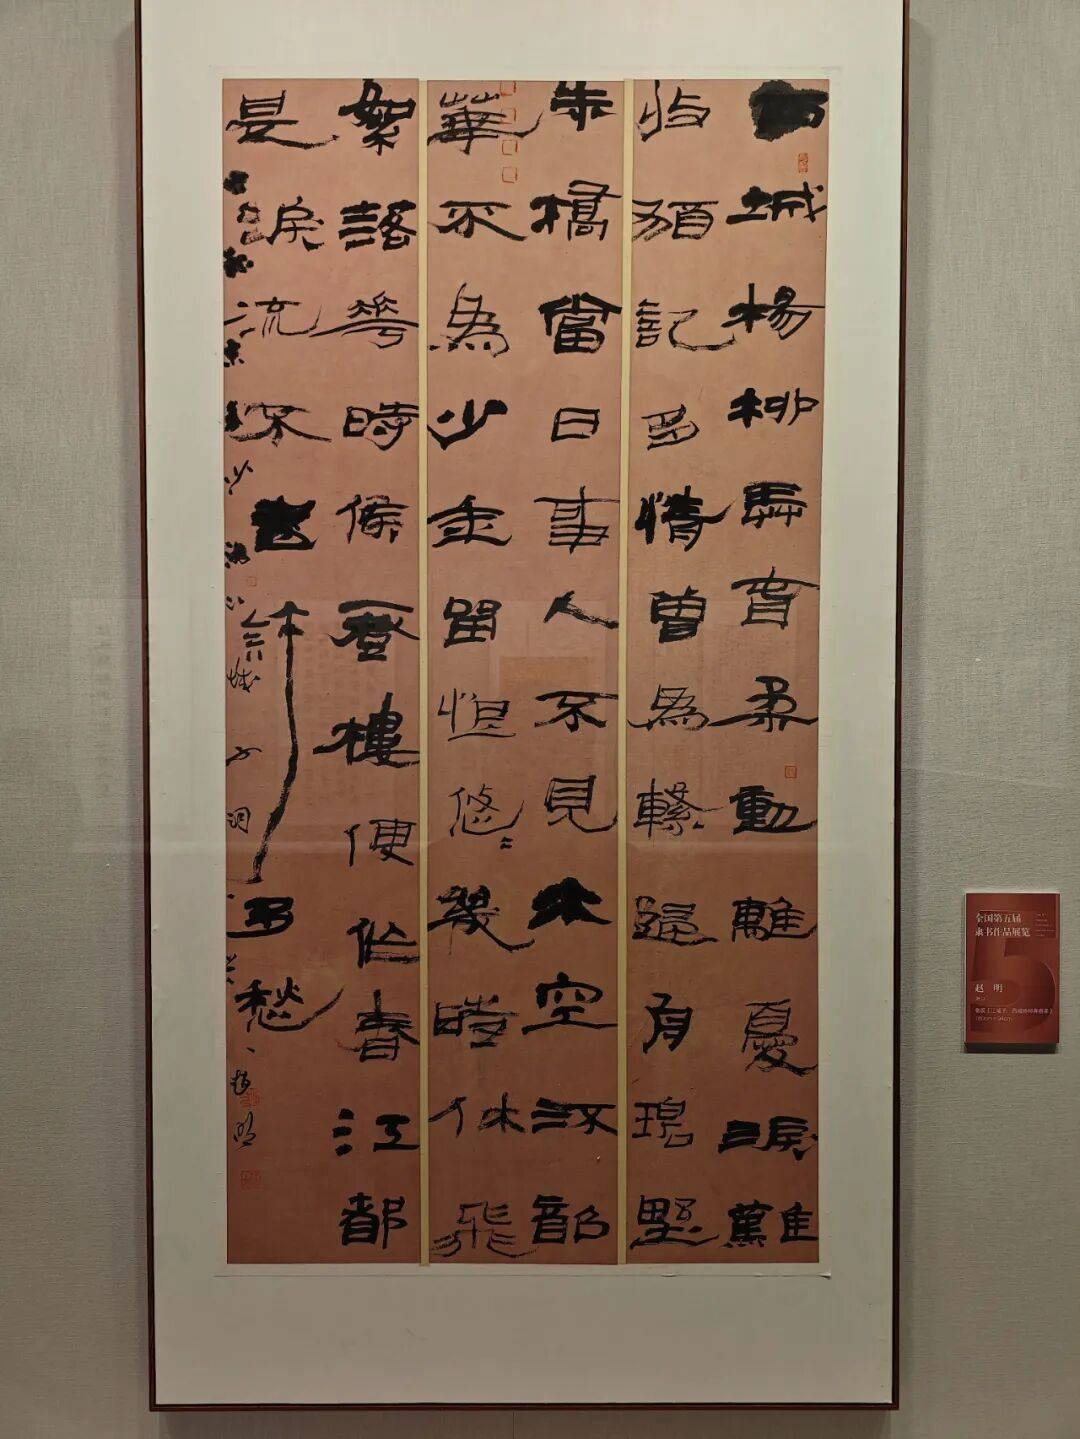 西城楊柳弄春柔動離憂淚難
收猶記多情曾為繫歸舟碧野
朱橋當日事人不見水空流韶
華不為少年留恨悠悠幾時休飛
絮落花時候一登樓便作春江都
是淚流不盡許多愁
少游江城子詞
趙明
全国第五届
隶书作品展览
赵 明
秦观《江城子·西城杨柳弄春柔》